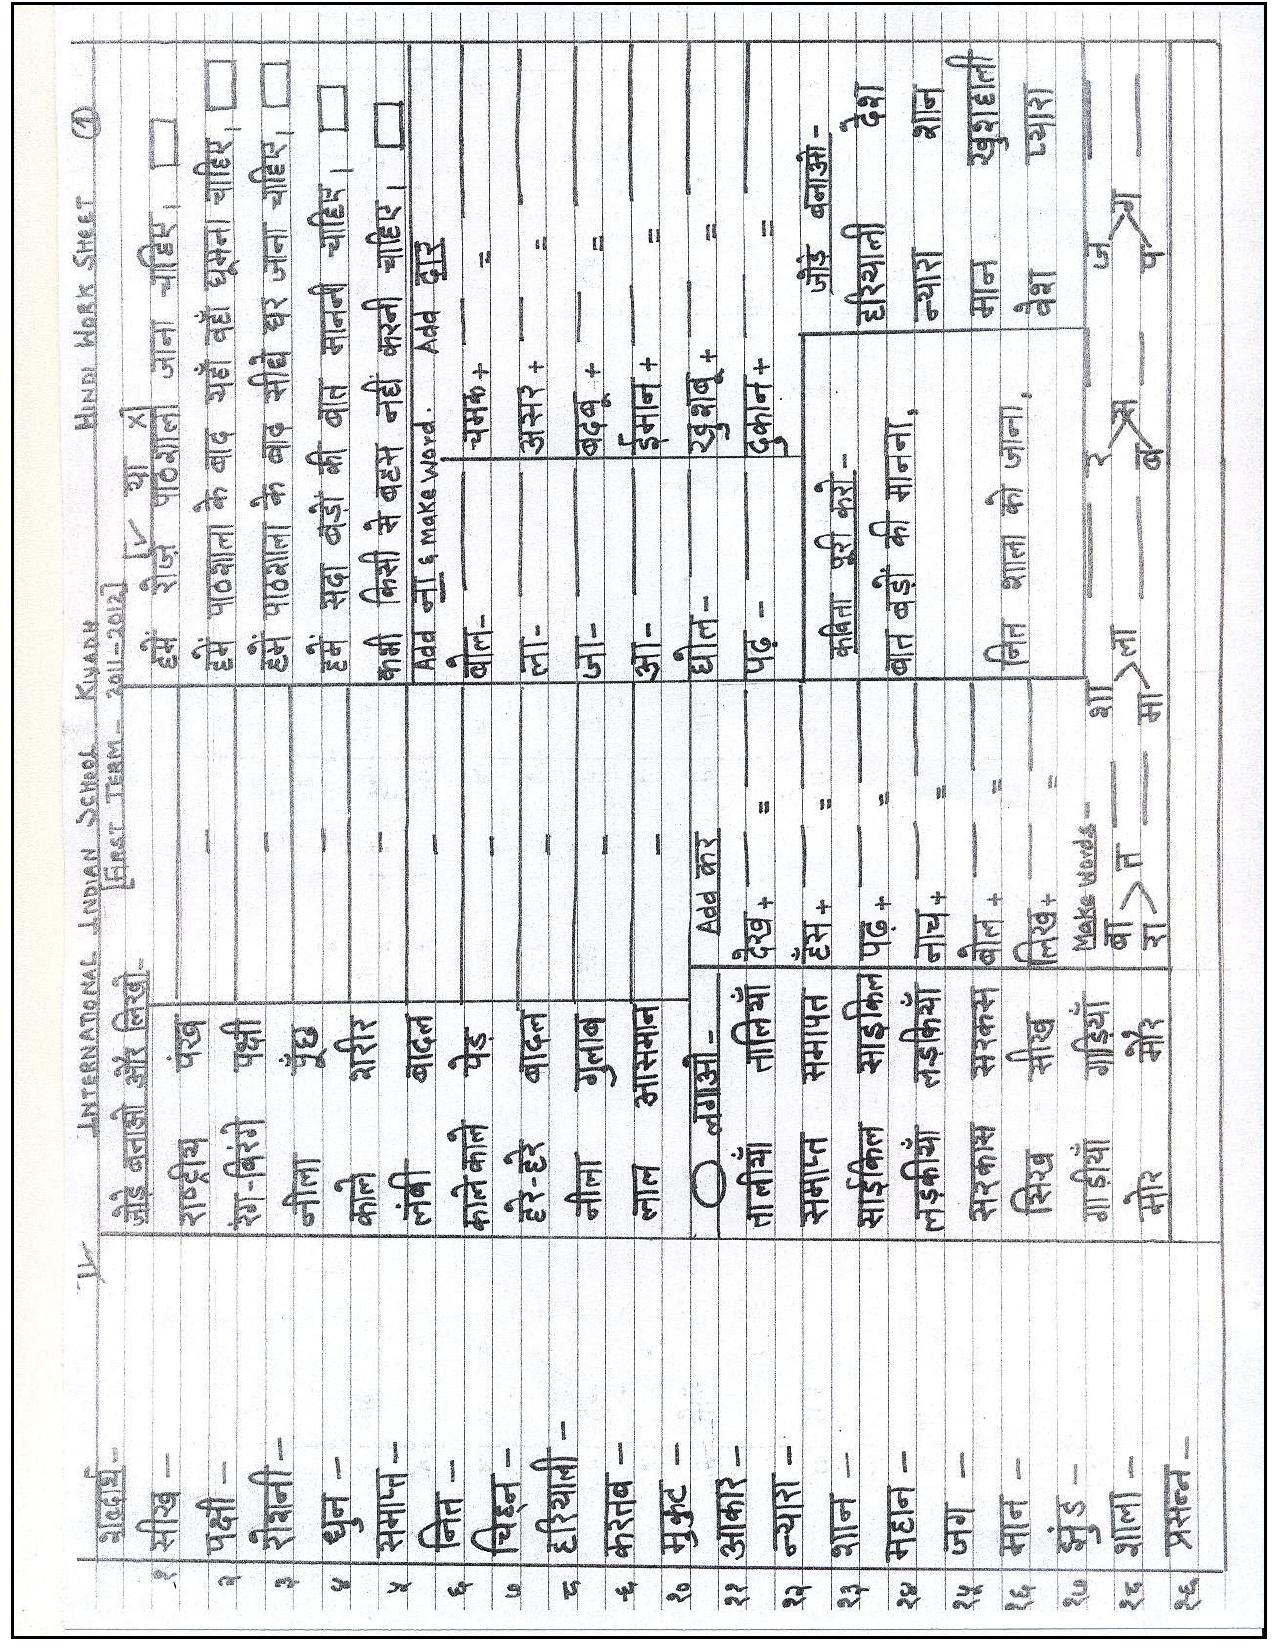 II INTERNATIONAL INDIAN SCHOOL RIYADH HINDI WORK SHEET (1)
[FIRST TERM - 2011-2012]
शब्दार्थ -
१ सीख -
२ पक्षी -
३ रोशनी -
४ धुन -
५ समाप्त -
६ नित -
७ चिह्न -
८ हरियाली -
९ करतब -
१० मुकुट -
११ आकार -
१२ न्यारा -
१३ शान -
१४ महान -
१५ जग -
१६ मान -
१७ झुंड -
१८ शाला -
१९ प्रसन्न -
जोड़े बनाओ और लिखो -
राष्ट्रीय पंख -
रंग-बिरंगे पक्षी -
नीला पूँछ -
काले शरीर -
लंबी बादल -
काले काले पेड़ -
हरे-हरे बादल -
नीला गुलाब -
लाल आसमान -
O लगाओ -
तालीयाँ तालियाँ
समाप्त समापत
साईकिल साइकिल
लड़कीयाँ लड़कियाँ
सरकास सरकस
सिख सीख
गाडीयाँ गाड़ियाँ
मोर मौर
Add कर
देख + ___ = ___
हँस + ___ = ___
पढ़ + ___ = ___
नाच + ___ = ___
बोल + ___ = ___
लिख + ___ = ___
[✓ या X]
हमें रोज़ पाठशाला जाना चाहिए।
हमें पाठशाला के बाद यहाँ वहाँ घूमना चाहिए।
हमें पाठशाला के बाद सीधे घर जाना चाहिए।
हमें सदा बड़ों की बात माननी चाहिए।
कभी किसी से बहस नहीं करनी चाहिए।
Add ना & Make word. Add दार
बोल- ___ चमक + ___ = ___
ला- ___ असर + ___ = ___
जा- ___ बदबू + ___ = ___
आ- ___ ईमान + ___ = ___
खुशबू + ___ = ___
पढ़ - ___ दुकान + ___ = ___
कविता पूरी करो -
बात बड़ों की मानना,
नित शाला को जाना,
जोड़े बनाओ -
हरियाली देश
न्यारा शान
मान खुशहाली
वेश प्यारा
Make Words -
बा > त ___ शा > ला ___ र > स ___ ज > ग ___
रा ___ मा ___ ब ___ प ___